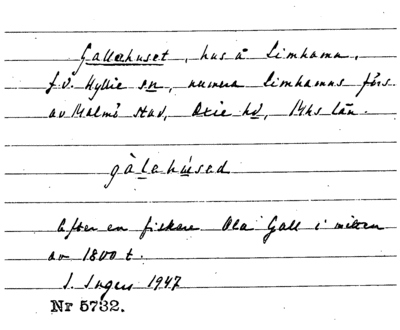 Gallahuset, hus å Limhamn,
f.d. Hyllie sn, numera Limhamns förs.
av Malmö stad, Oxie hd, Mhs län.
gàlahúsad
Efter en fiskare Ola Gall i mitten
av 1800 t.
I. Ingers 1947
Nr 5732.